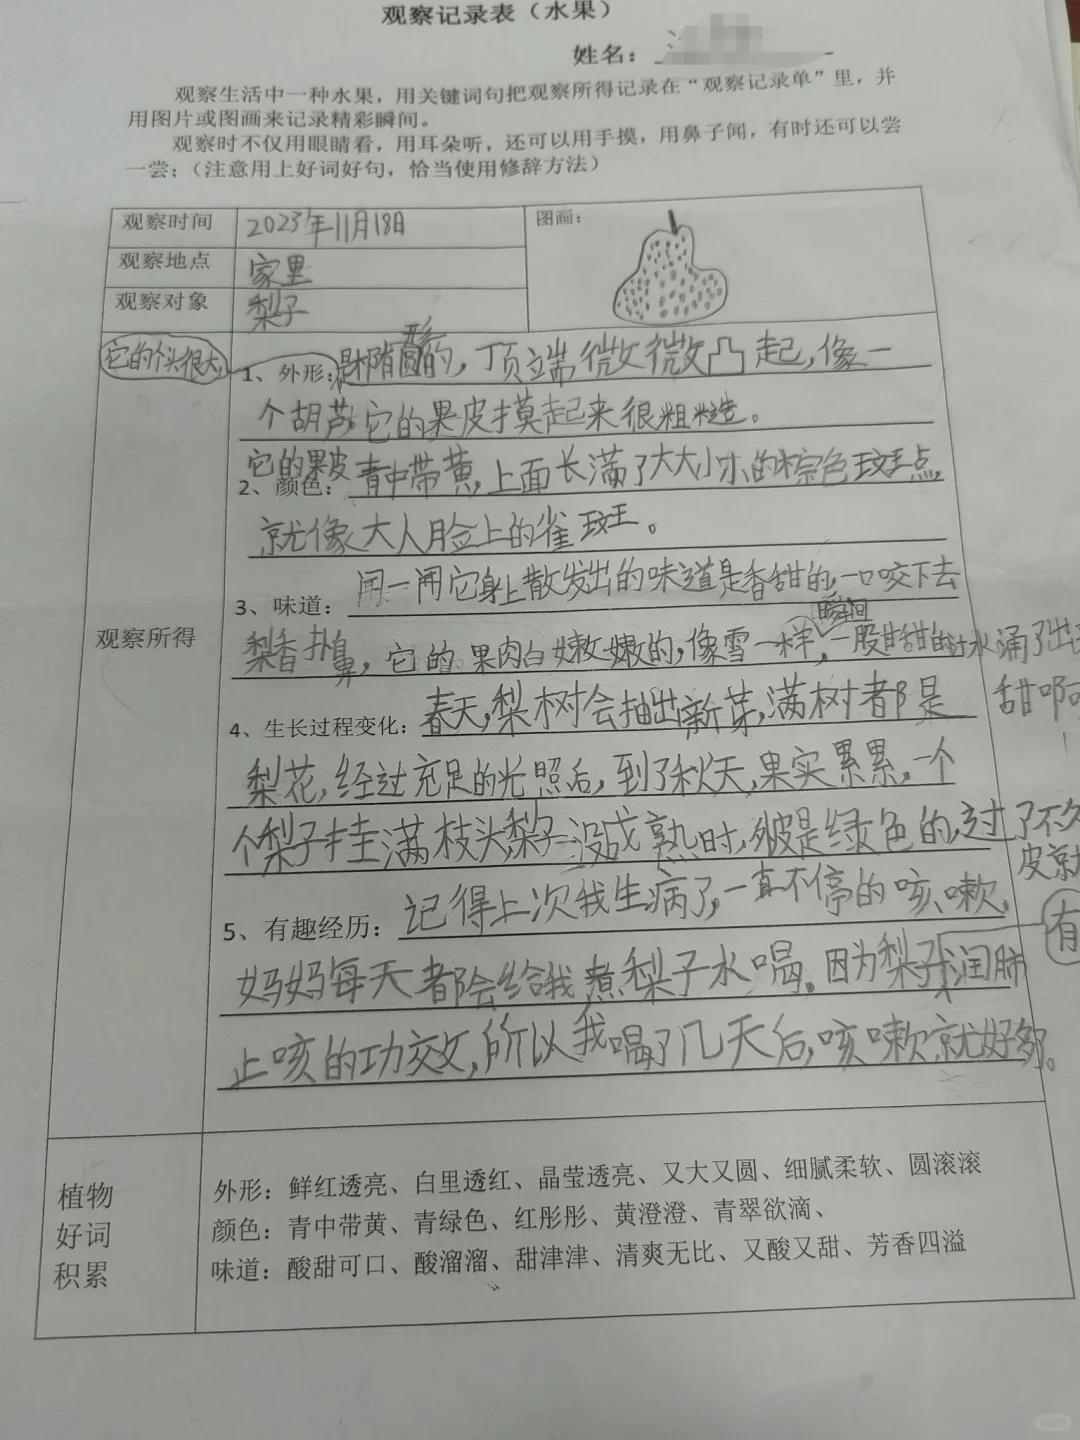 观察记录表（水果）
姓名：
观察生活中一种水果，用关键词句把观察所得记录在“观察记录单”里，并
用图片或图画来记录精彩瞬间。
观察时不仅用眼睛看，用耳朵听，还可以用手摸，用鼻子闻，有时还可以尝
一尝；（注意用上好词好句，恰当使用修辞方法）
观察时间 2023年11月18日 图画：
观察地点 家里
观察对象 梨子
观察所得
它的个头很大，
1、外形：是椭圆形的，顶端微微凸起，像一
个胡芦。它的果皮摸起来很粗糙。
它的果皮
2、颜色：青中带黄，上面长满了大大小小的棕色斑点，
就像大人脸上的雀斑。
3、味道：闻一闻它身上散发出的味道是香甜的，一口咬下去
瞬间
梨香扑鼻，它的果肉白嫩嫩的，像雪一样，一股甘甜的汁水涌了出
4、生长过程变化：春天，梨树会抽出新芽，满树都是
甜啊
梨花，经过充足的光照后，到了秋天，果实累累，一个
个梨子挂满枝头，梨子没成熟时，皮是绿色的，过了不久
皮就
5、有趣经历：记得上次我生病了，一直不停的咳嗽，
有
妈妈每天都会给我煮梨子水喝。因为梨子润肺
止咳的功效，所以我喝了几天后，咳嗽就好多。
植物
好词
积累
外形：鲜红透亮、白里透红、晶莹透亮、又大又圆、细腻柔软、圆滚滚
颜色：青中带黄、青绿色、红彤彤、黄澄澄、青翠欲滴、
味道：酸甜可口、酸溜溜、甜津津、清爽无比、又酸又甜、芳香四溢